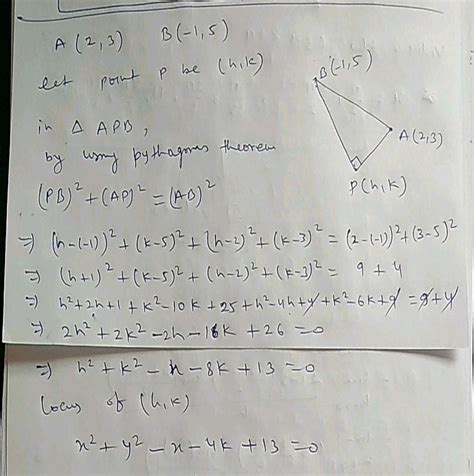 A (2,3)    B(-1,5)
let point P be (h,k)
B(-1,5)
A(2,3)
P(h,k)
in △ APB,
by using pythagoras theorem
(PB)² + (AP)² = (AB)²
⇒ (h-(-1))² + (k-5)² + (h-2)² + (k-3)² = (2-(-1))² + (3-5)²
⇒ (h+1)² + (k-5)² + (h-2)² + (k-3)² = 9 + 4
⇒ h² + 2h + 1 + k² - 10k + 25 + h² - 4h + 4 + k² - 6k + 9 = 9 + 4
⇒ 2h² + 2k² - 2h - 16k + 26 = 0
⇒ h² + k² - h - 8k + 13 = 0
locus of (h,k)
x² + y² - x - 4k + 13 = 0